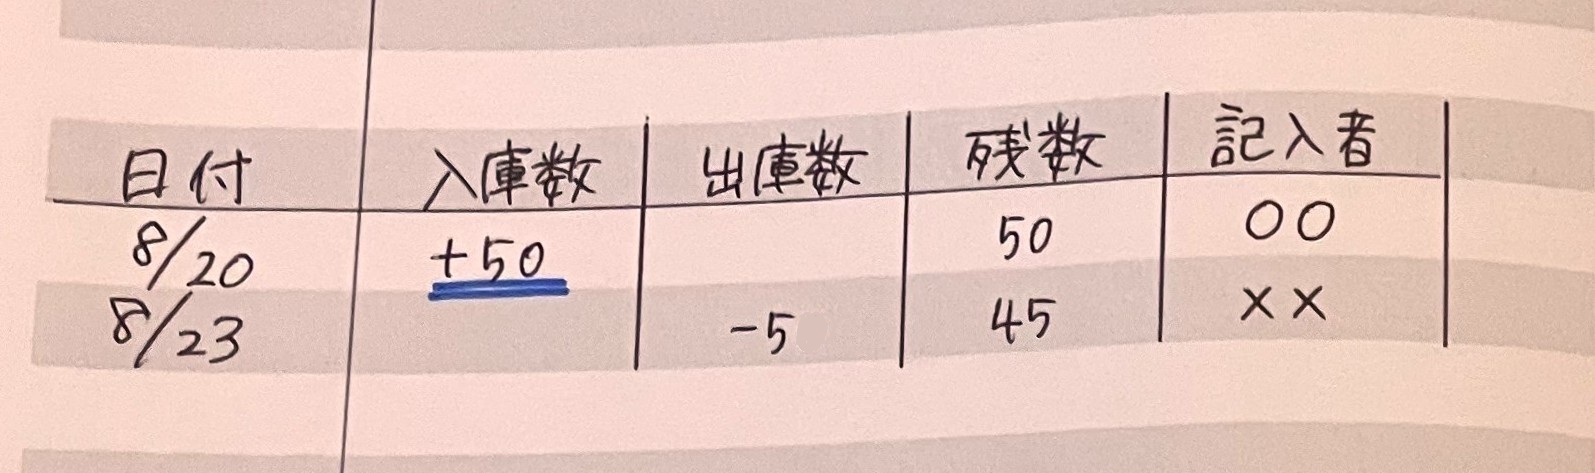 日付 入庫数 出庫数 残数 記入者
8/20 +50 50 ○○
8/23 -5 45 ××